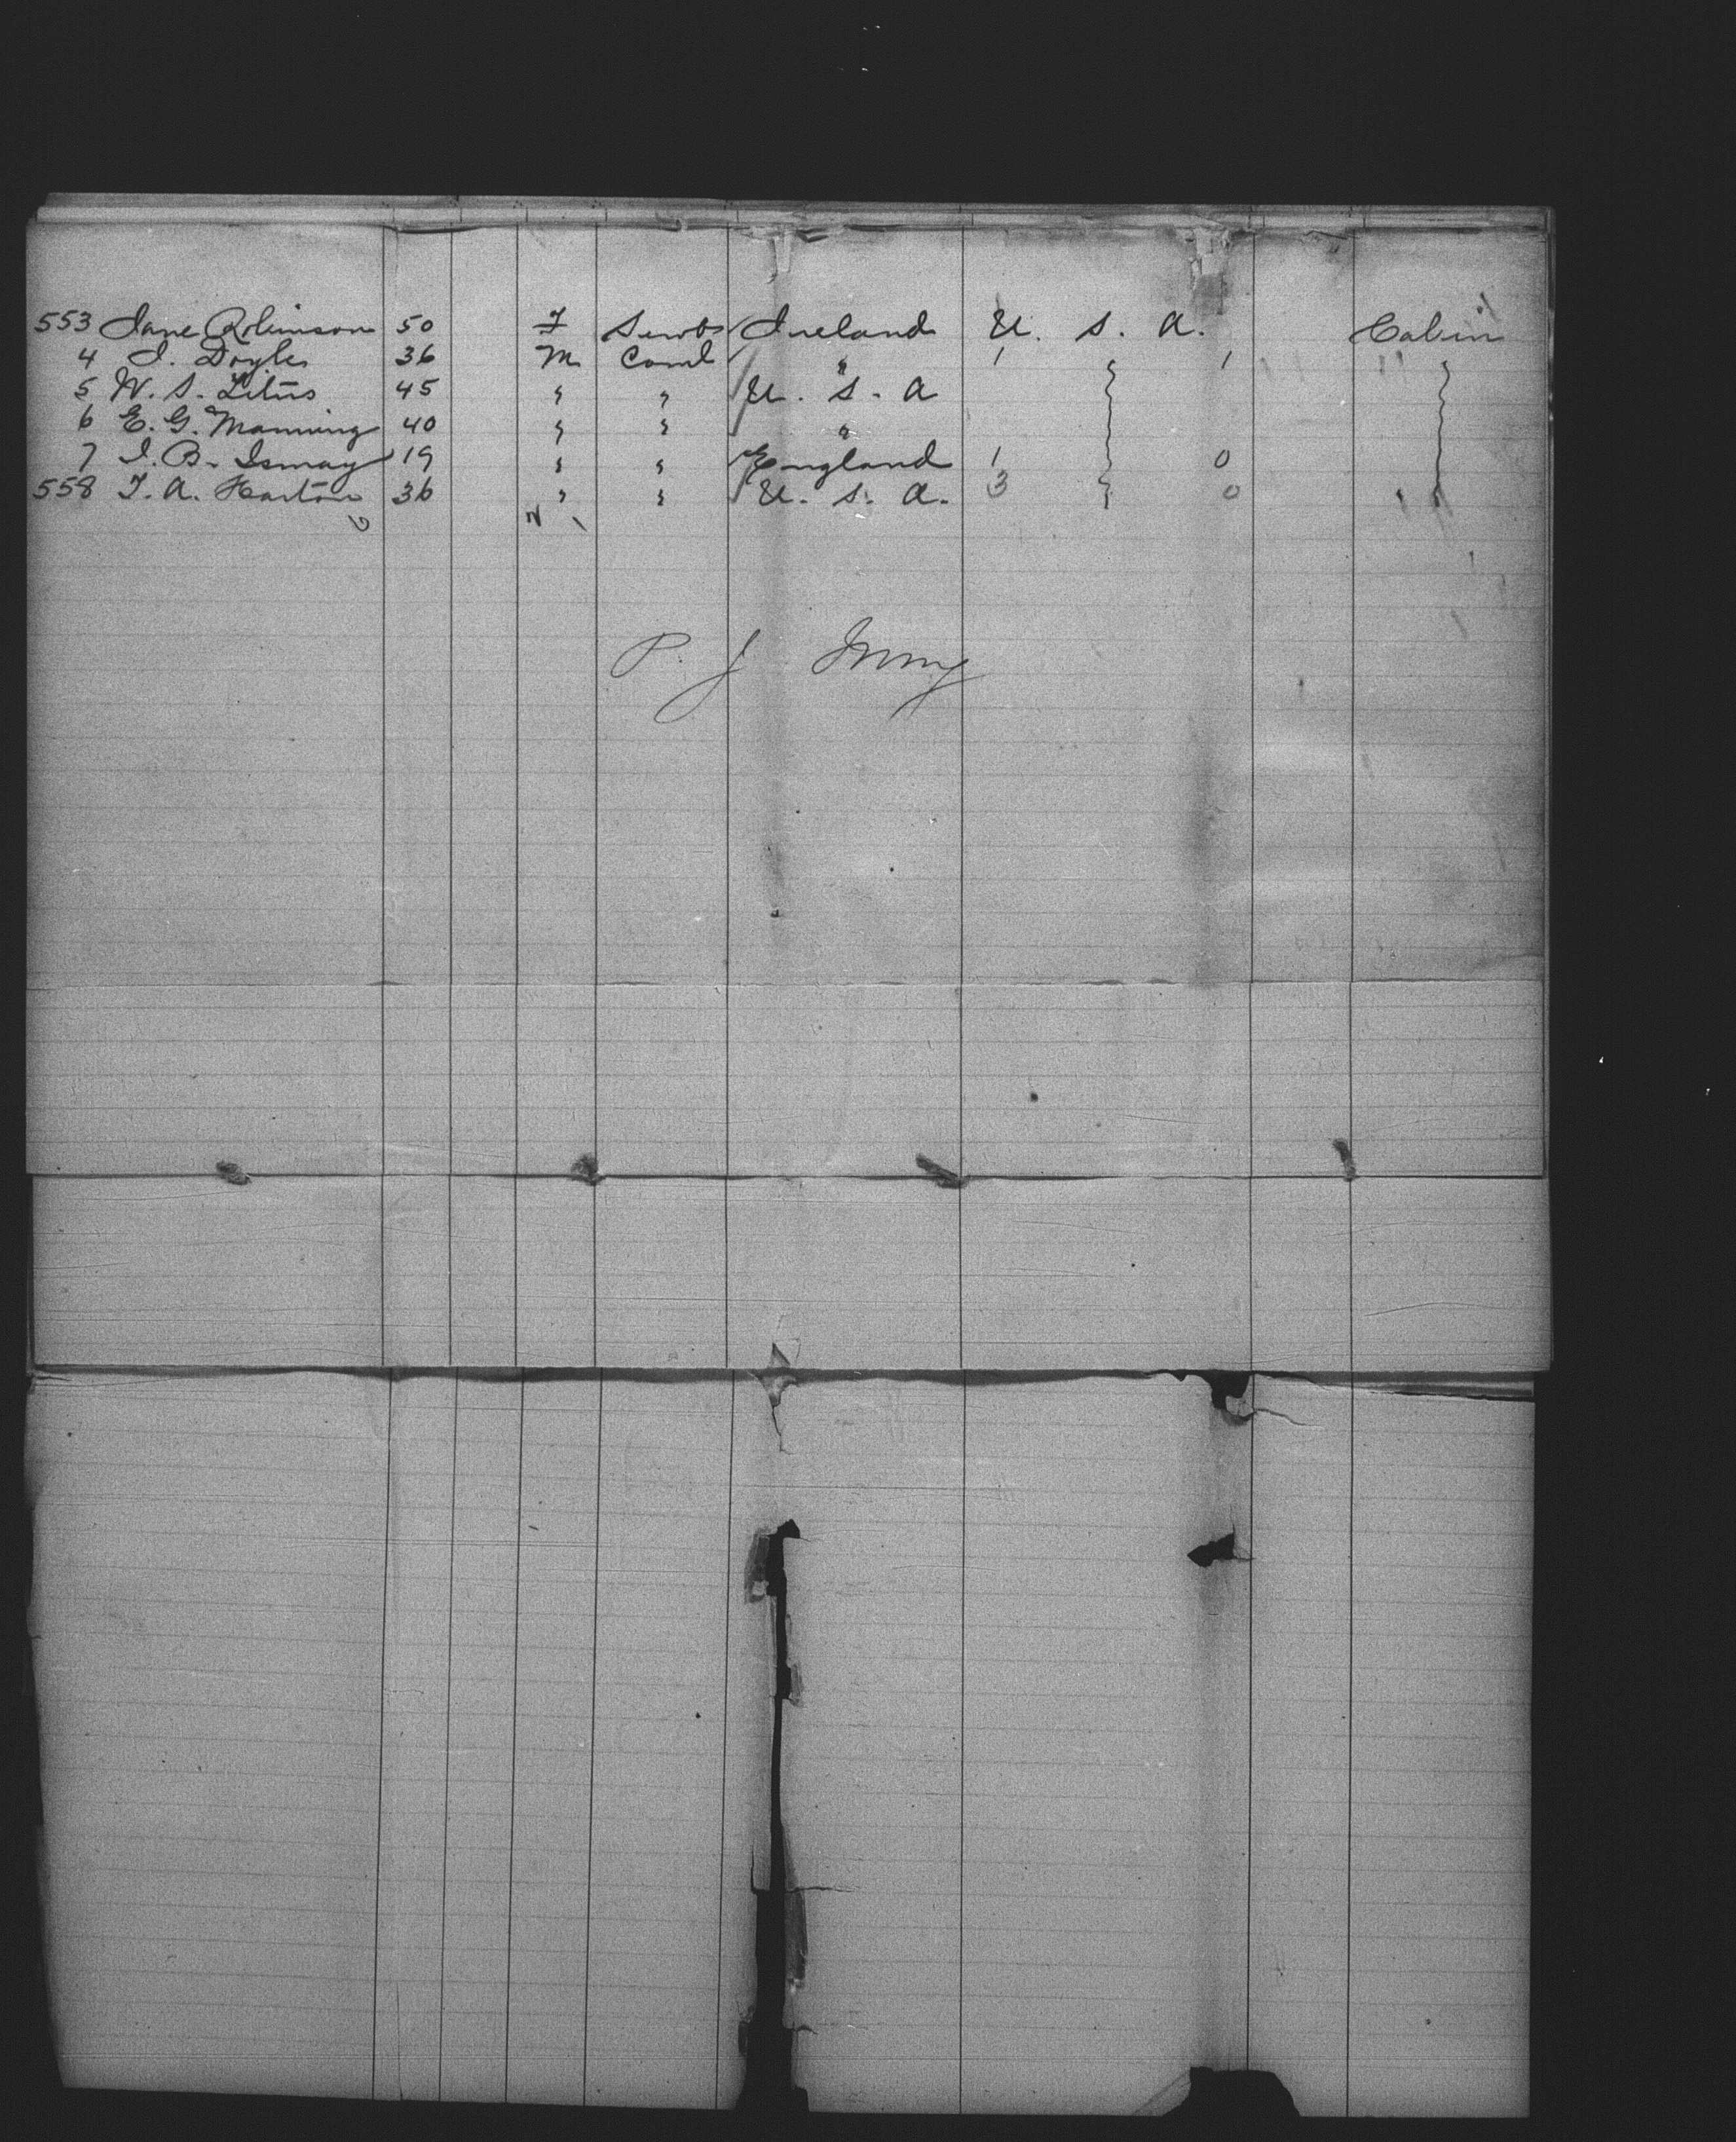 553 Jane Robinson 50 F Servt Ireland U. S. A. Cabin
4 J. Doyle 36 M Coml " 1 1
5 W. S. 45 " " U. S. A
6 E. G. Manning 40 " " "
7 J. B. Ismay 19 " " England 1 0
558 T. A. 36 " " U. S. A. 3 0
P. J